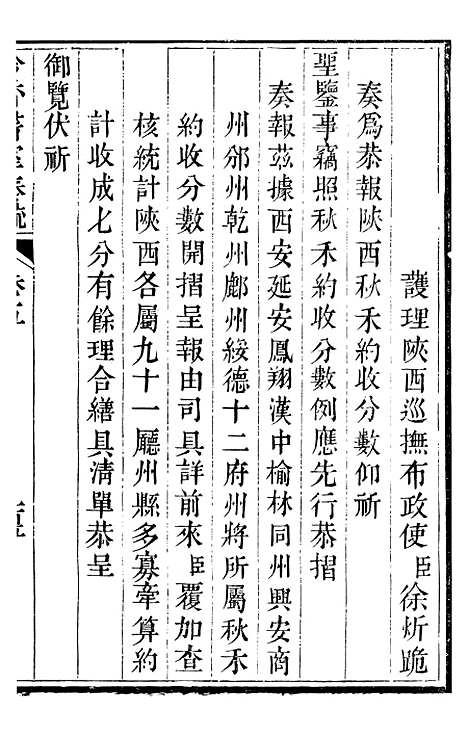 護理陝西巡撫布政使臣徐炘跪
奏爲恭報陝西秋禾約收分數仰祈
聖鑒事竊照秋禾約收分數例應先行恭摺
奏報茲據西安延安鳳翔漢中榆林同州興安商
州邠州乾州鄜州綏德十二府州將所屬秋禾
約收分數開摺呈報由司具詳前來臣覆加查
核統計陝西各屬九十一廳州縣多寡牽算約
計收成七分有餘理合繕具清單恭呈
御覽伏祈